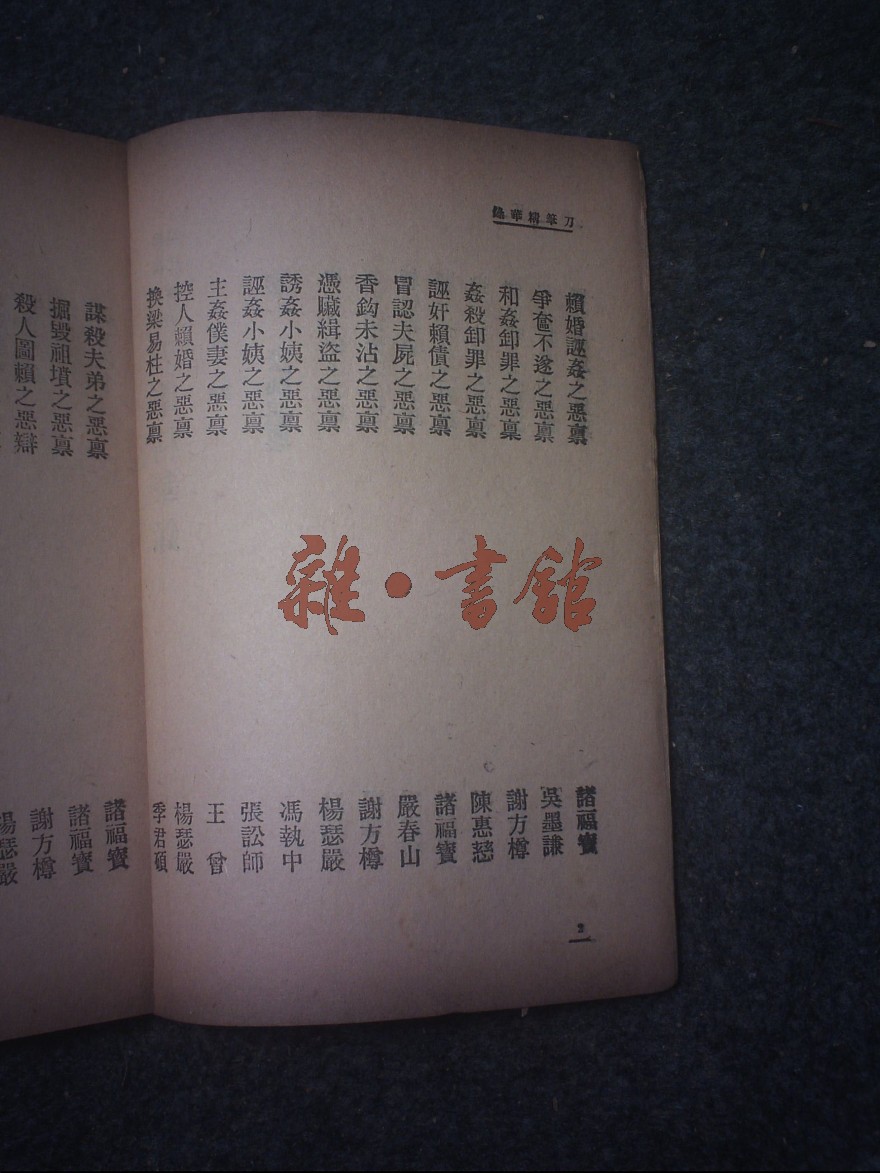 刀筆精華錄
賴婚誣姦之惡稟 諸福寶
爭奩不遂之惡稟 吳墨謙
和姦卸罪之惡稟 謝方樽
姦殺卸罪之惡稟 陳惠慈
誣奸賴債之惡稟 諸福寶
冒認夫屍之惡稟 嚴春山
香鈎未沾之惡稟 謝方樽
憑贜緝盜之惡稟 楊瑟嚴
誘姦小姨之惡稟 馮執中
誣姦小姨之惡稟 張訟師
主姦僕妻之惡稟 王曾
控人賴婚之惡稟 楊瑟嚴
換梁易柱之惡稟 季君碩
2
謀殺夫弟之惡稟 諸福寶
掘毀祖墳之惡稟 諸福寶
殺人圖賴之惡辯 謝方樽
楊瑟嚴
雜·書館